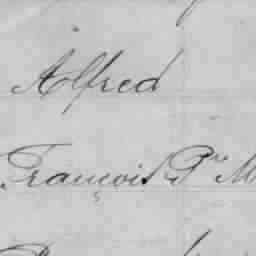 Alfred
François P.re M